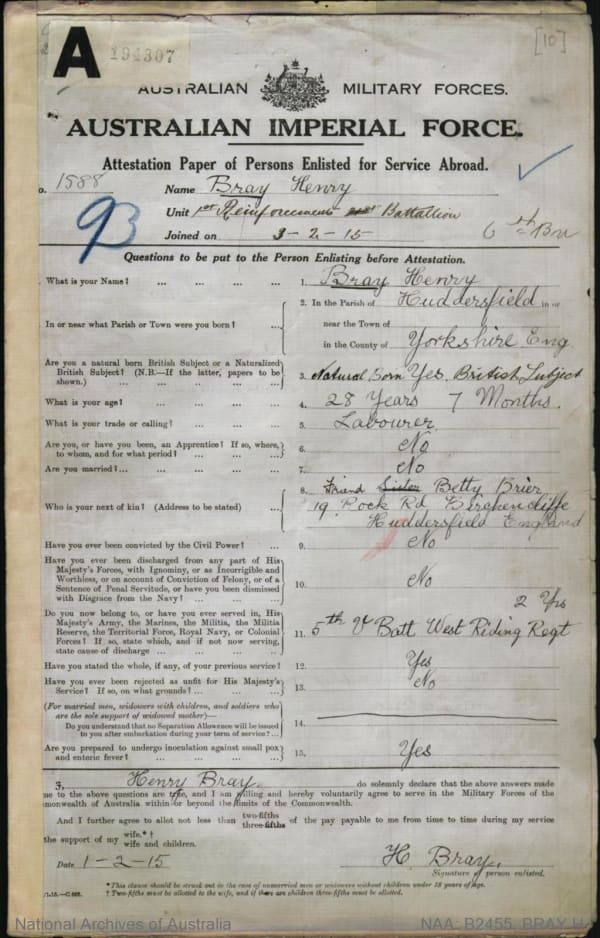 A 194307
[10]
AUSTRALIAN MILITARY FORCES.
AUSTRALIAN IMPERIAL FORCE.
Attestation Paper of Persons Enlisted for Service Abroad.
o. 1588 Name Bray Henry
Unit 1st Reinforcements Battallion
93
Joined on 3-2-15 6th Bn
Questions to be put to the Person Enlisting before Attestation.
What is your Name? ... ... ... ... 1. Bray Henry
In or near what Parish or Town were you born? ... 2. In the Parish of Huddersfield in or
near the Town of
in the County of Yorkshire Eng
Are you a natural born British Subject or a Naturalized
British Subject? (N.B.—If the latter, papers to be
shown.) ... ... ... ... 3. Natural Born Yes. British Subject
What is your age? ... ... ... ... 4. 28 Years 7 Months.
What is your trade or calling? ... ... ... 5. Labourer
Are you, or have you been, an Apprentice? If so, where,
to whom, and for what period? ... ... ... 6. No
Are you married? ... ... ... ... ... 7. No
Who is your next of kin? (Address to be stated) ... 8. Friend Sister Betty Brier
19 Rock Rd Birchencliffe
Huddersfield England
Have you ever been convicted by the Civil Power? ... 9. No
Have you ever been discharged from any part of His
Majesty's Forces, with Ignominy, or as Incorrigible and
Worthless, or on account of Conviction of Felony, or of a
Sentence of Penal Servitude, or have you been dismissed
with Disgrace from the Navy? ... ... ... 10. No
2 Yrs
Do you now belong to, or have you ever served in, His
Majesty's Army, the Marines, the Militia, the Militia
Reserve, the Territorial Force, Royal Navy, or Colonial
Forces? If so, state which, and if not now serving,
state cause of discharge ... ... ... 11. 5th V Batt West Riding Regt
Have you stated the whole, if any, of your previous service? 12. Yes
Have you ever been rejected as unfit for His Majesty's
Service? If so, on what grounds? ... ... ... 13. No
(For married men, widowers with children, and soldiers who
are the sole support of widowed mother)—
Do you understand that no Separation Allowance will be issued
to you after embarkation during your term of service? ... 14.
Are you prepared to undergo inoculation against small pox
and enteric fever? ... ... ... ... 15. Yes
I, Henry Bray do solemnly declare that the above answers made
me to the above questions are true, and I am willing and hereby voluntarily agree to serve in the Military Forces of the
monwealth of Australia within or beyond the limits of the Commonwealth.
And I further agree to allot not less than two-fifths three-fifths of the pay payable to me from time to time during my service
the support of my wife.*†
wife and children.
Date 1-2-15 H. Bray.
Signature of person enlisted.
* This clause should be struck out in the case of unmarried men or widowers without children under 18 years of age.
† Two-fifths must be allotted to the wife, and if there are children three-fifths must be allotted.
National Archives of Australia NAA: B2455, BRAY H